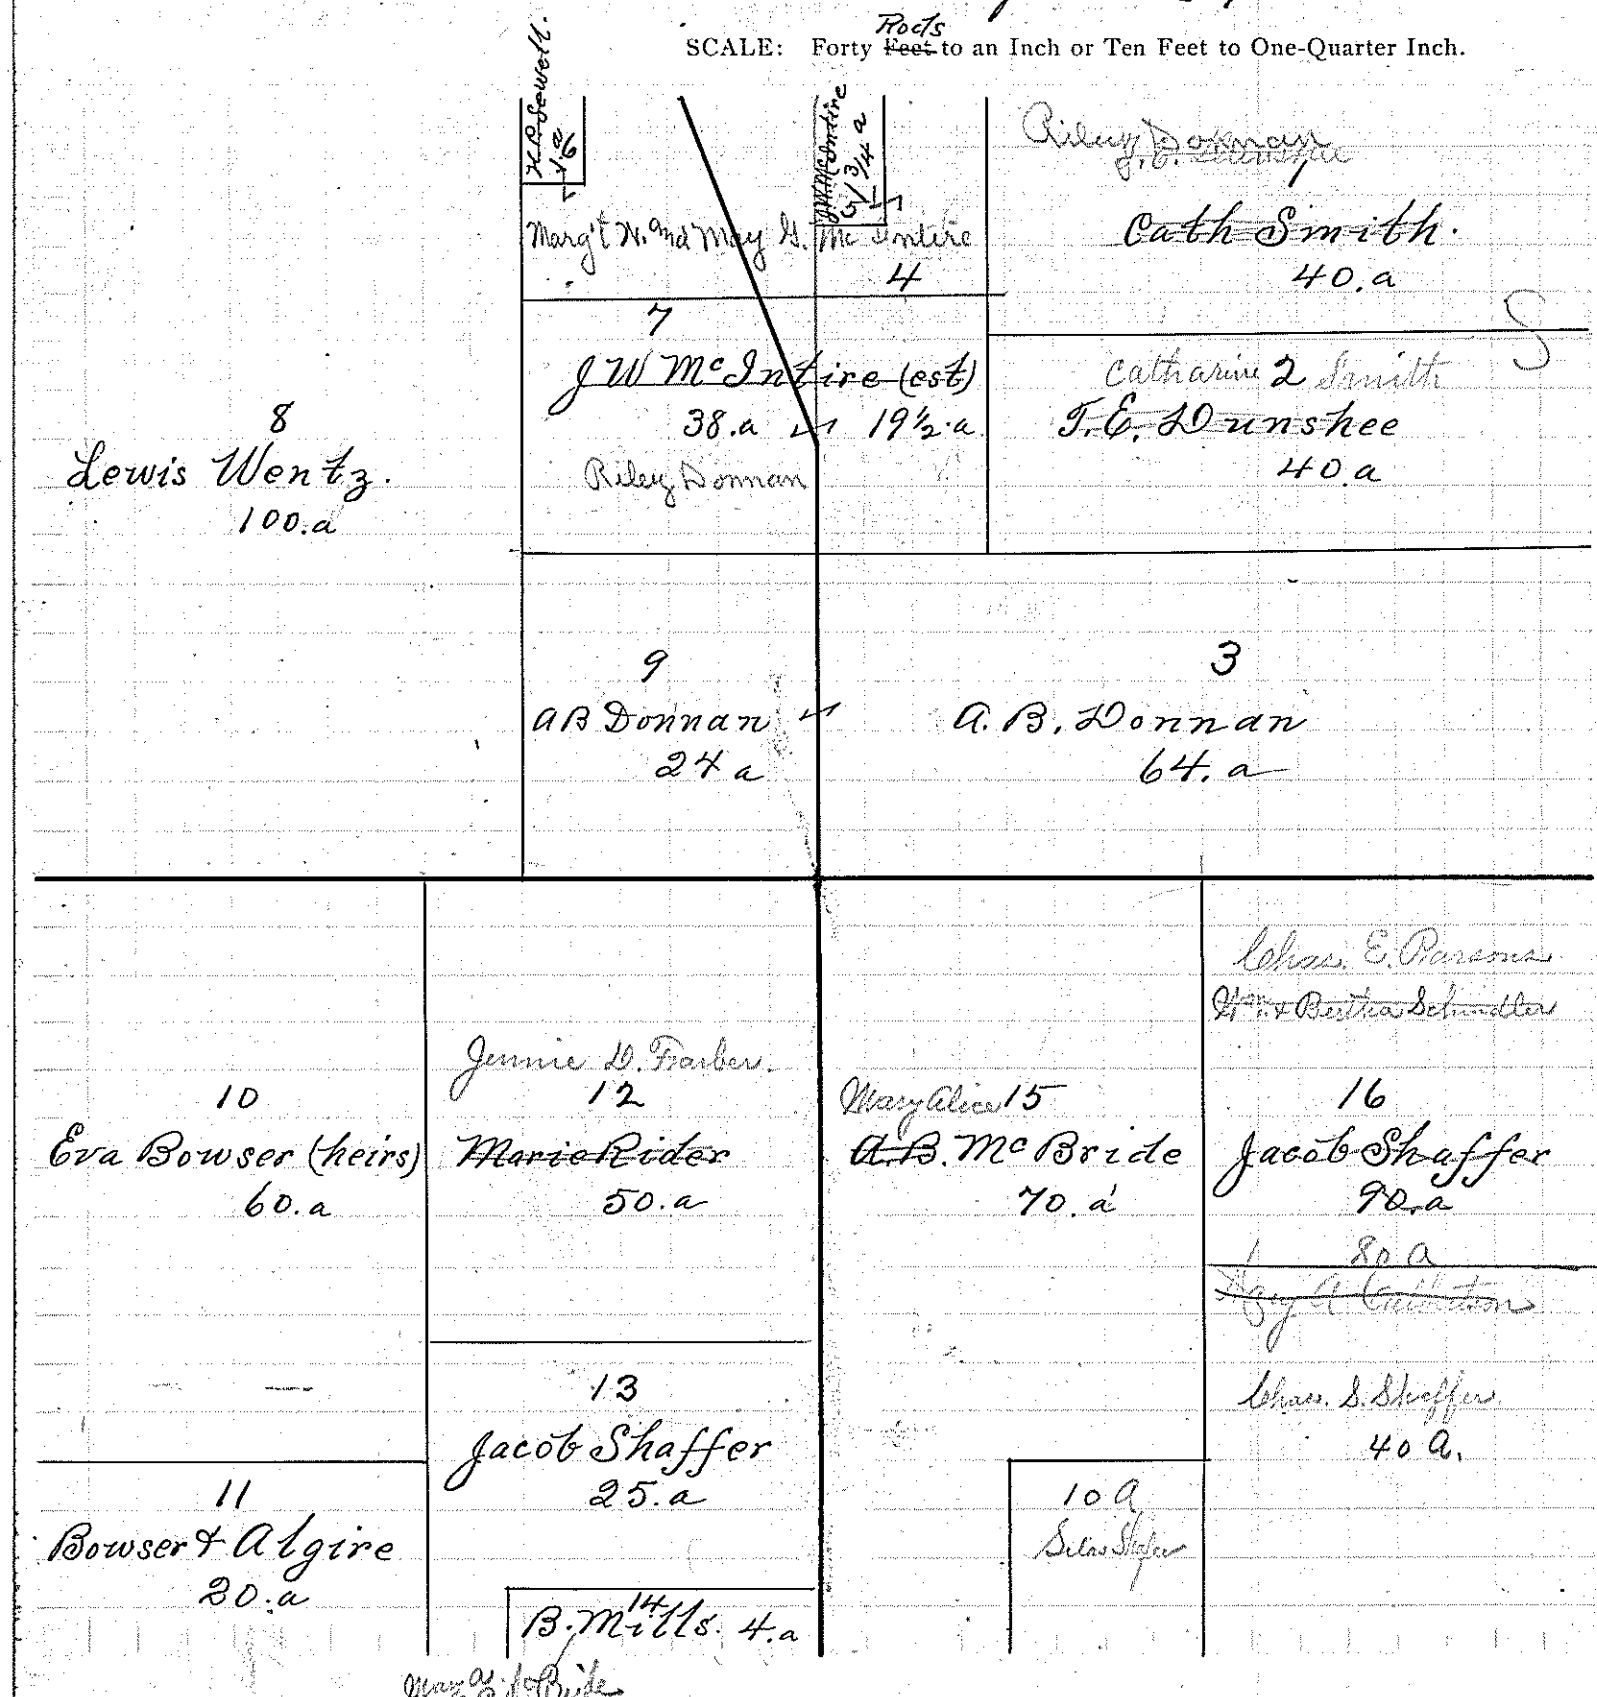 Rods
SCALE: Forty Feet to an Inch or Ten Feet to One-Quarter Inch.
H.P. Sewell.
1/6 a
J.W. McIntire
5 3/4 a
Riley Donnan
1
Cath Smith.
40.a
Marg't N. and May G. McIntire
4
7
J W McIntire (est)
38.a 19 1/2.a
Riley Donnan
Catharine 2 Smith
T.E. Dunshee
40.a
8
Lewis Wentz.
100.a
9
A B Donnan
24 a
3
A. B. Donnan
64. a
Chas. E. Parsons
Wm. & Bertha Schindler
Jennie D. Farber.
10
Eva Bowser (heirs)
60.a
12
Marie Rider
50.a
Mary Alice 15
A.B. McBride
70. a
16
Jacob Shaffer
90.a
80 A
Chas. S. Shaffer.
40 A.
13
Jacob Shaffer
25.a
11
Bowser & Algire
20.a
10 A
Silas Shafer
14
B. Mills. 4.a
McBride